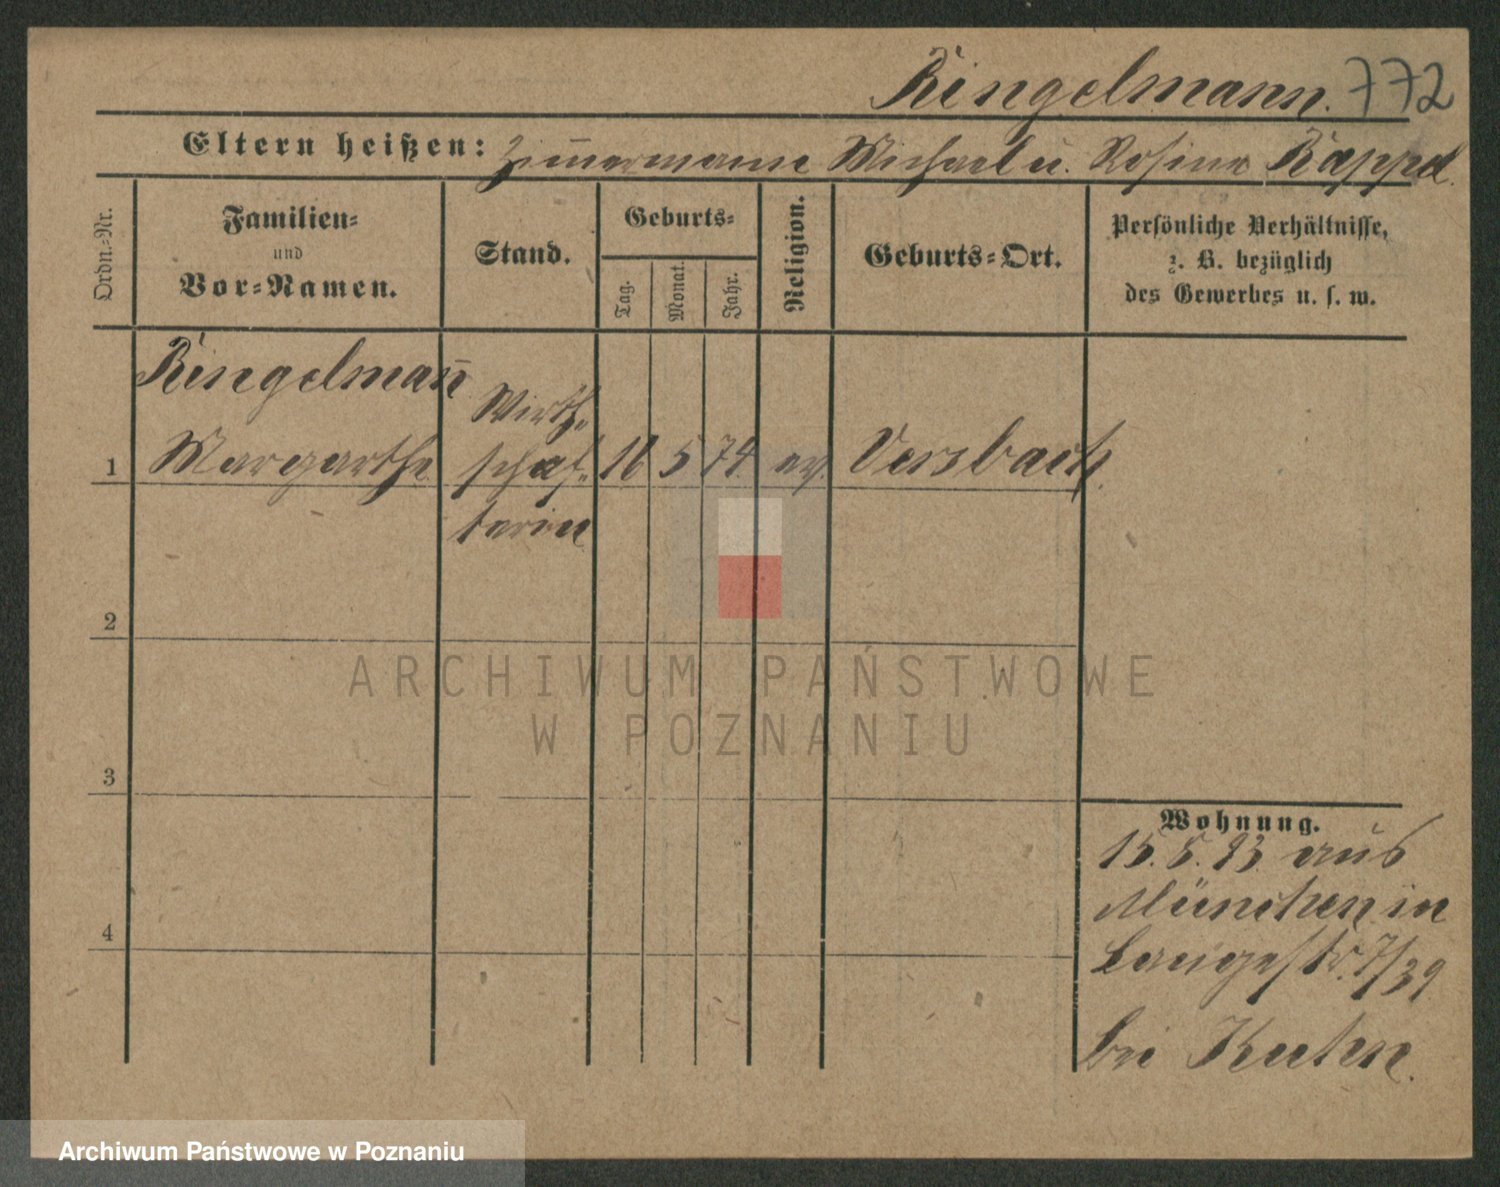 Ringelmann. 772
Eltern heißen: Zimmermann Michael u. Rosina
Ordn.-Nr.
Familien-
und
Vor-Namen.
Stand.
Geburts-
Tag.
Monat.
Jahr.
Religion.
Geburts-Ort.
Persönliche Verhältnisse,
z. B. bezüglich
des Gewerbes u. s. w.
Ringelman̄
Wirth-
1 Margarthe 5 74. ev. Versbach.
schaf-
terin
2
3
4
ARCHIWUM PAŃSTWOWE
W POZNANIU
Wohnung.
15. 5. 93. aus
München in
Langestr. 7/39
bei Kuhn.
Archiwum Państwowe w Poznaniu